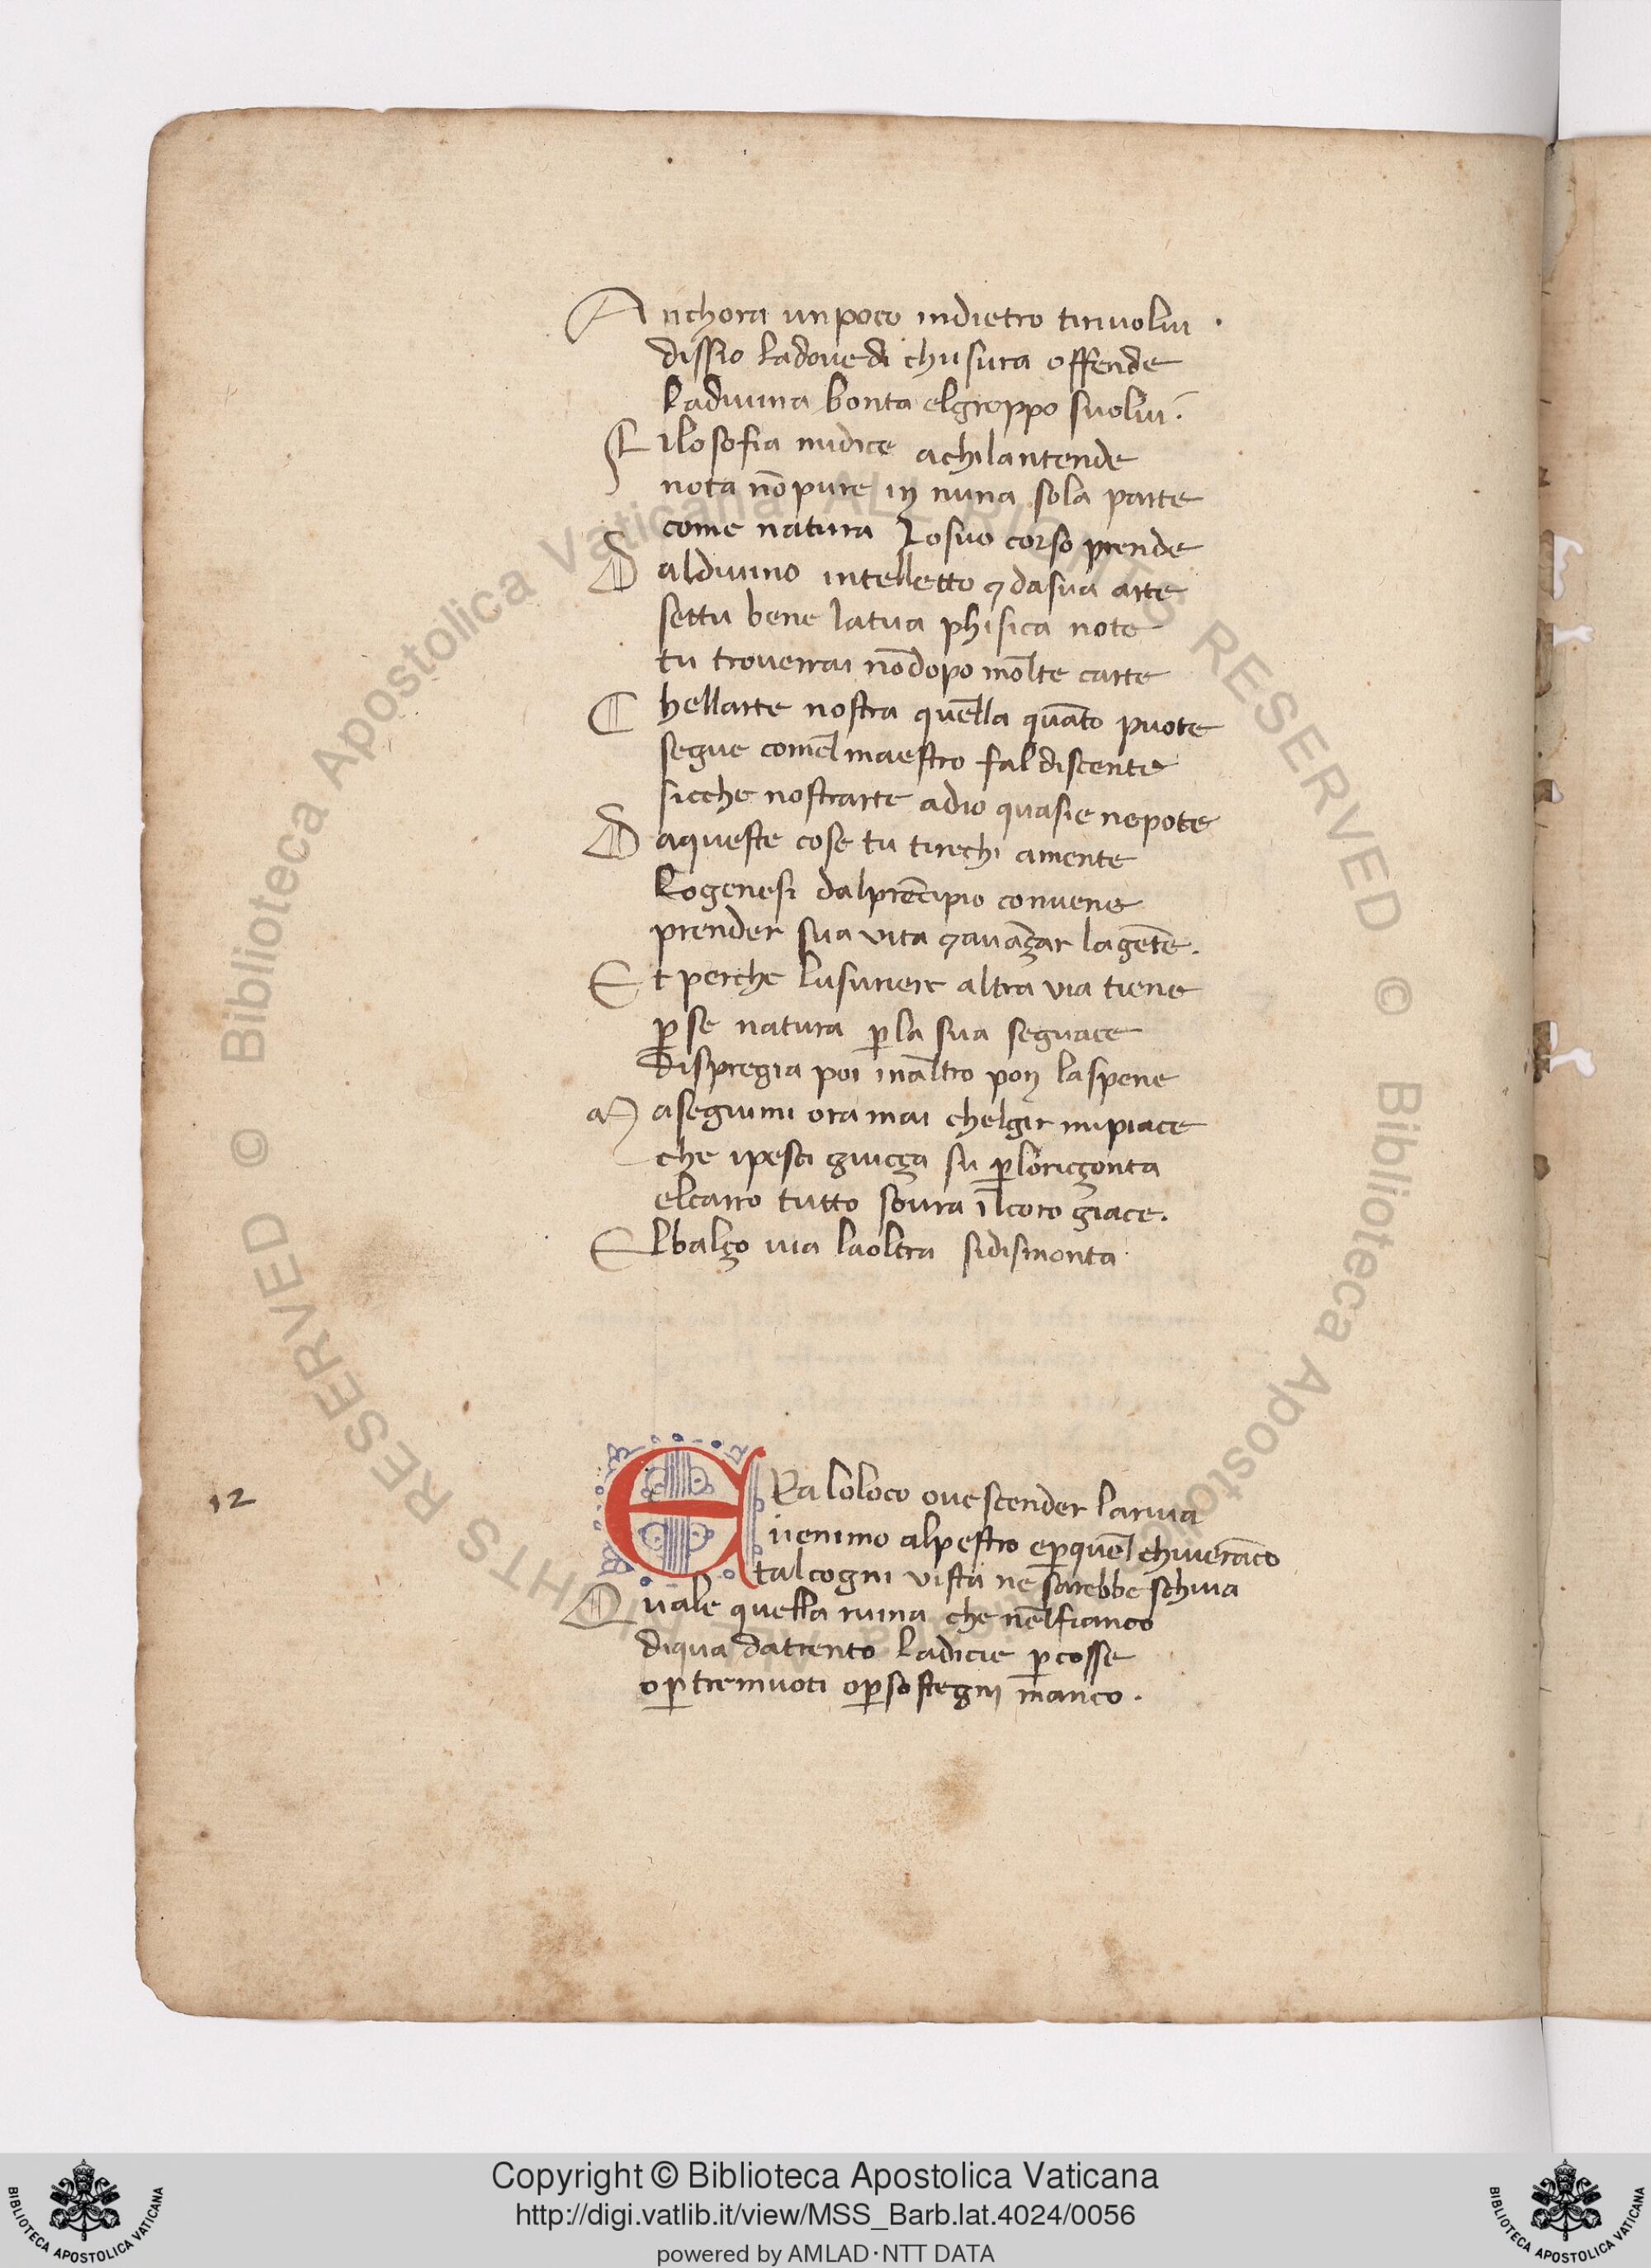 Anchora unpoco indietro tirivolvi ·
dissio ladovedi chusura offende
ladivina bonta elgroppo suolvi.
Filosofia midice achilantende
nota nōpure in nuna sola parte
come natura losuo corso prende
Daldivino intelletto ⁊ dasua arte
settu bene latua phisica note
tu troverrai nōdopo mōlte carte
Chellarte nostra quēlla quāto puote
segue comel maestro fal discente
sicche nostrarte adio quasie nepote
Daqueste cose tu tirechi amente
logenesi dalprēcipio convene
prender sua vita ⁊ avāçar lagēte.
Et perche lusuriere altra via tiene
ꝑse natura ꝑla sua seguace
dispregia poi inaltro pon laspene
Maseguimi oramai chelgir mipiace
che ipesci guicça su ꝑloricçonta
elcarro tutto sovra ilcoro giace.
Elbalço via laoltra sidismonta
12
ERa loloco ove scender lariva
venimo alpestro eꝑquel chiverāco
talcogni vista ne sarebbe schiva
Quale quella ruina che nēlfianco
diqua datrento ladicie ꝑcosse
oꝑtremuoti oꝑsostegni manco.
© Biblioteca Apostolica Vaticana ALL RIGHTS RESERVED © Biblioteca Apostolica Vaticana ALL RIGHTS RESERVED
Copyright © Biblioteca Apostolica Vaticana
http://digi.vatlib.it/view/MSS_Barb.lat.4024/0056
powered by AMLAD·NTT DATA
BIBLIOTECA APOSTOLICA VATICANA
BIBLIOTECA APOSTOLICA VATICANA